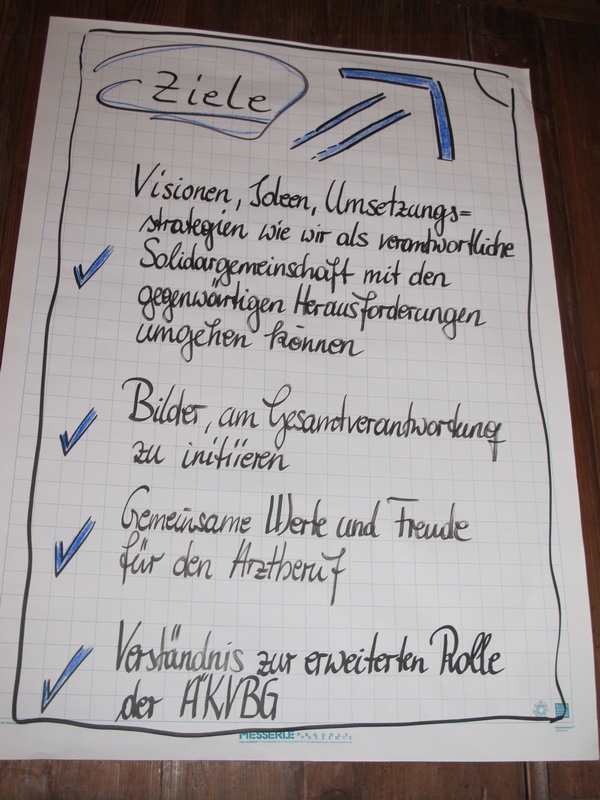 Ziele
Visionen, Ideen, Umsetzungs=
strategien wie wir als verantwortliche
Solidargemeinschaft mit den
gegenwärtigen Herausforderungen
umgehen können
Bilder, um Gesamtverantwortung
zu initiieren
Gemeinsame Werte und Freude
für den Arztberuf
Verständnis zur erweiterten Rolle
der ÄKVBG
MESSERLE